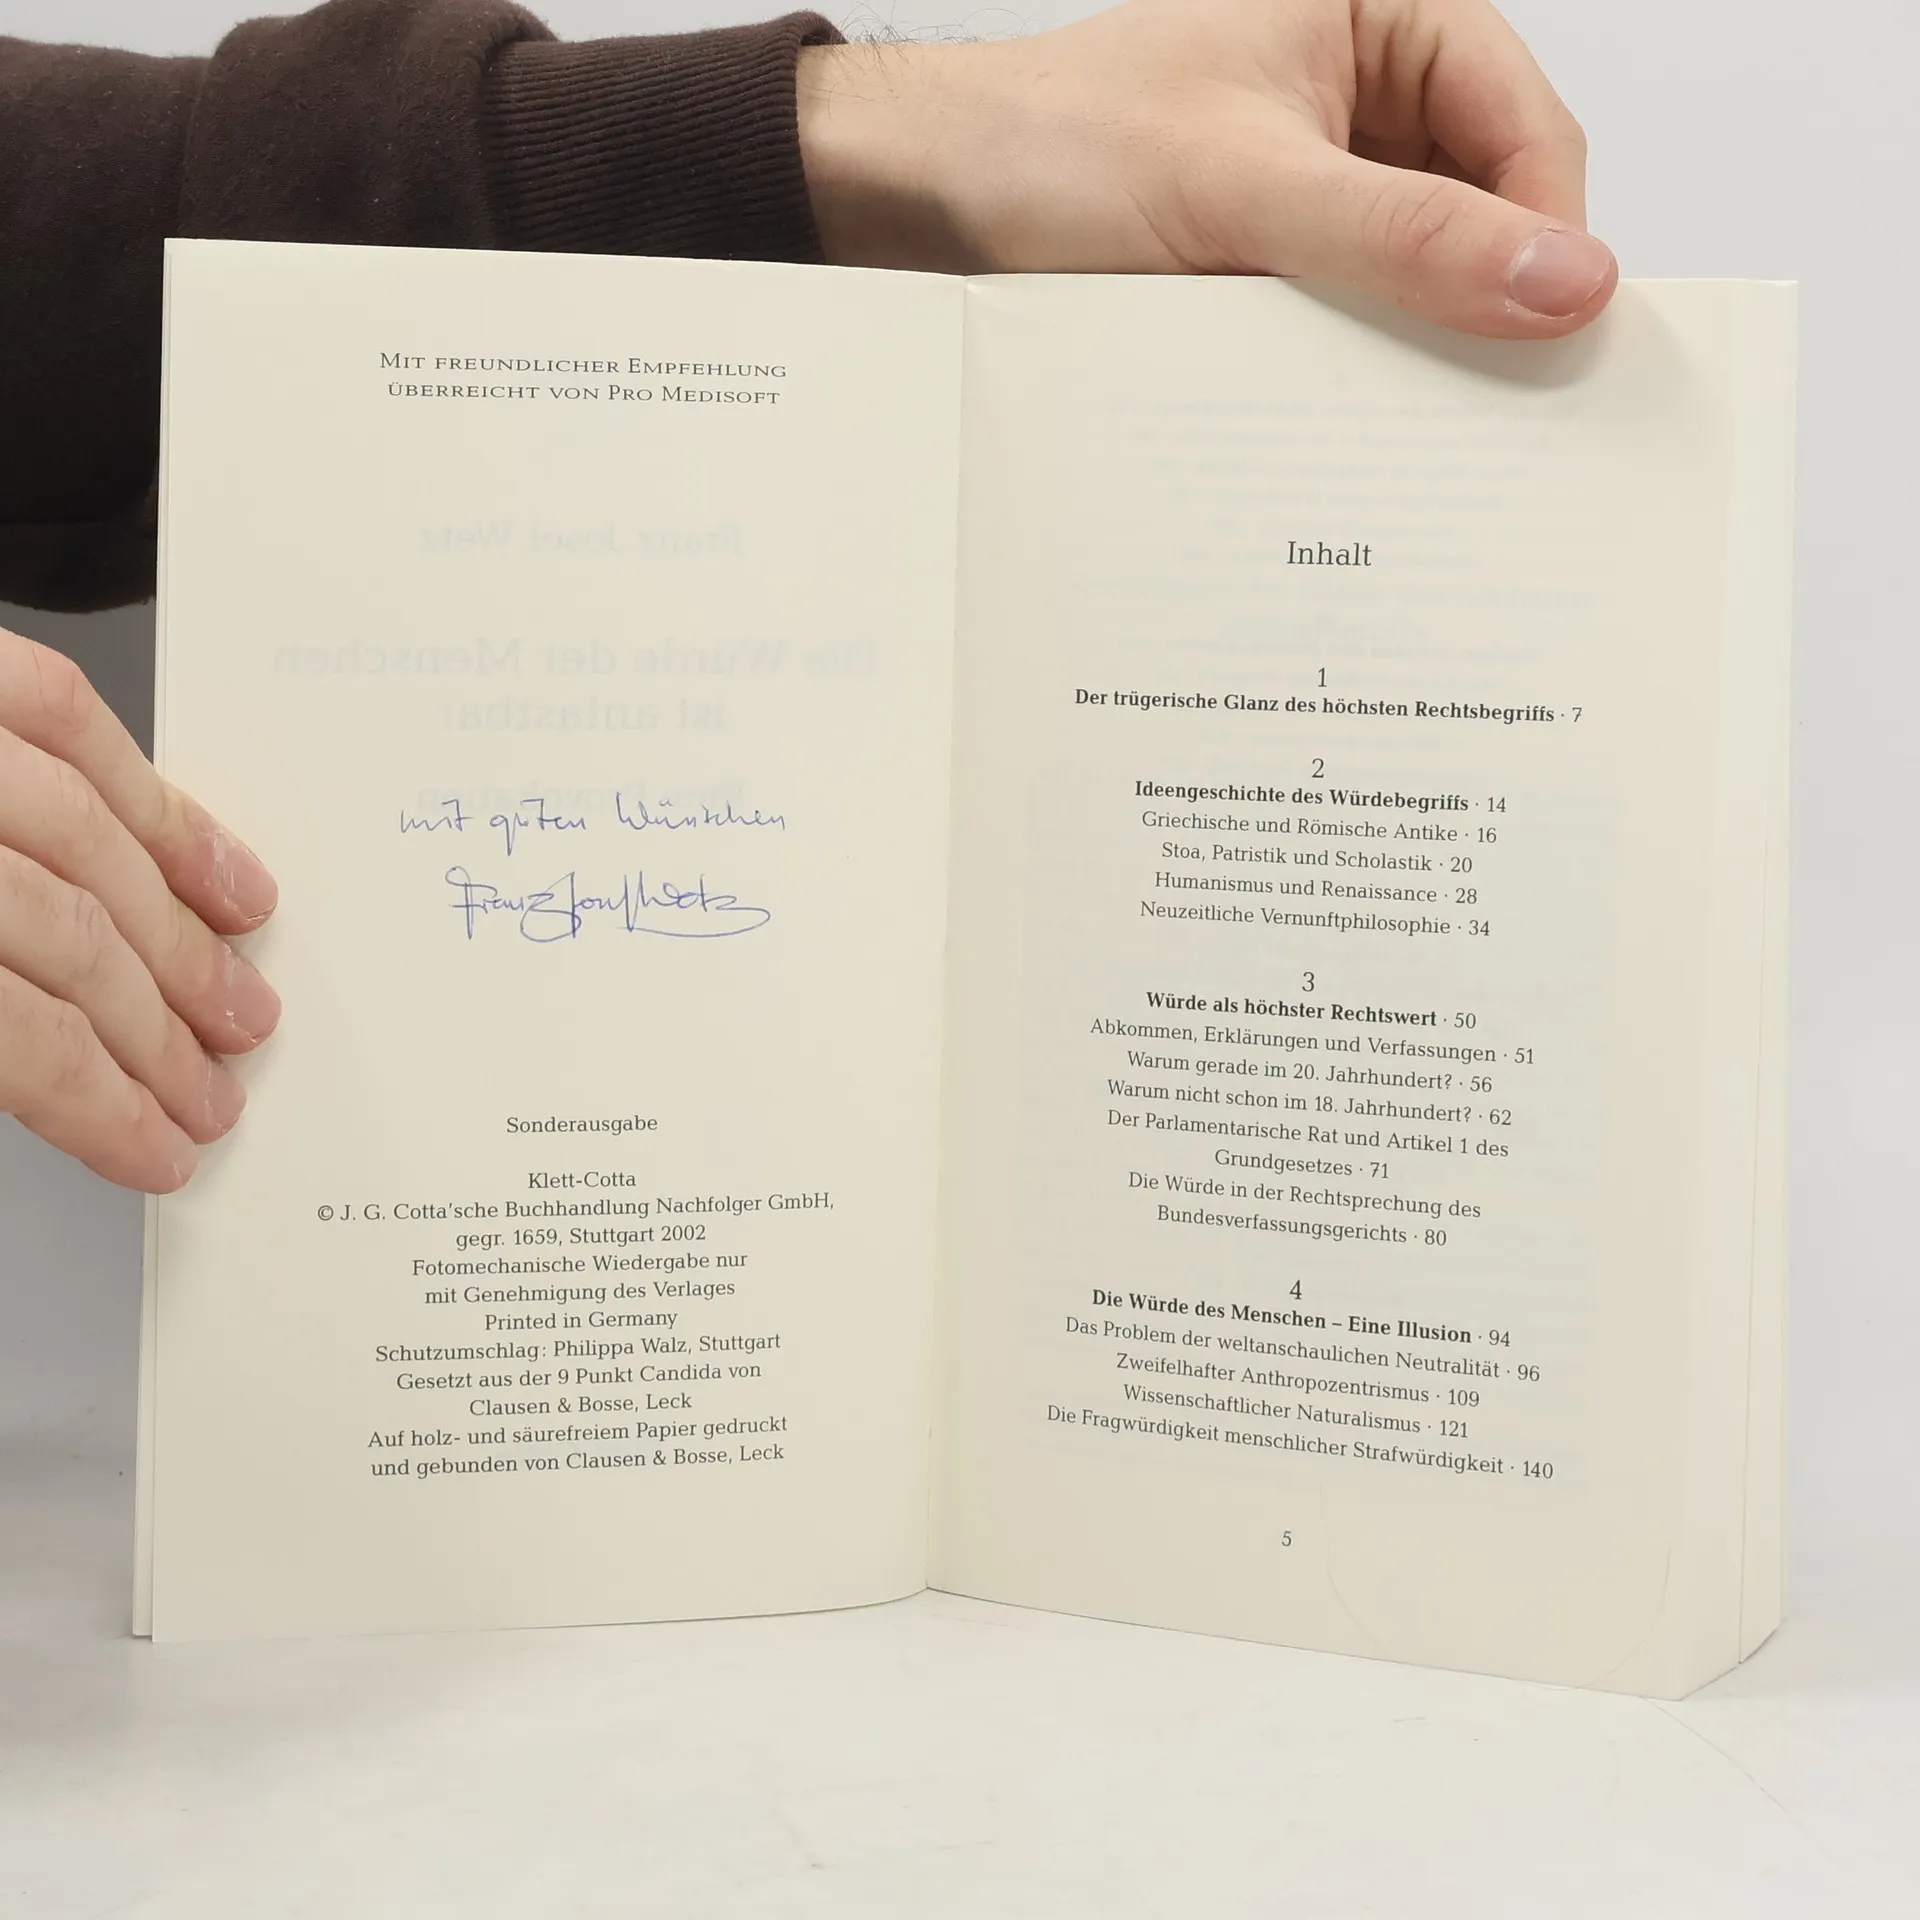 MIT FREUNDLICHER EMPFEHLUNG
ÜBERREICHT VON PRO MEDISOFT
mit guten Wünschen
Franz Josef Wetz
Sonderausgabe
Klett-Cotta
© J. G. Cotta'sche Buchhandlung Nachfolger GmbH,
gegr. 1659, Stuttgart 2002
Fotomechanische Wiedergabe nur
mit Genehmigung des Verlages
Printed in Germany
Schutzumschlag: Philippa Walz, Stuttgart
Gesetzt aus der 9 Punkt Candida von
Clausen & Bosse, Leck
Auf holz- und säurefreiem Papier gedruckt
und gebunden von Clausen & Bosse, Leck
Inhalt
1
Der trügerische Glanz des höchsten Rechtsbegriffs · 7
2
Ideengeschichte des Würdebegriffs · 14
Griechische und Römische Antike · 16
Stoa, Patristik und Scholastik · 20
Humanismus und Renaissance · 28
Neuzeitliche Vernunftphilosophie · 34
3
Würde als höchster Rechtswert · 50
Abkommen, Erklärungen und Verfassungen · 51
Warum gerade im 20. Jahrhundert? · 56
Warum nicht schon im 18. Jahrhundert? · 62
Der Parlamentarische Rat und Artikel 1 des
Grundgesetzes · 71
Die Würde in der Rechtsprechung des
Bundesverfassungsgerichts · 80
4
Die Würde des Menschen – Eine Illusion · 94
Das Problem der weltanschaulichen Neutralität · 96
Zweifelhafter Anthropozentrismus · 109
Wissenschaftlicher Naturalismus · 121
Die Fragwürdigkeit menschlicher Strafwürdigkeit · 140
5